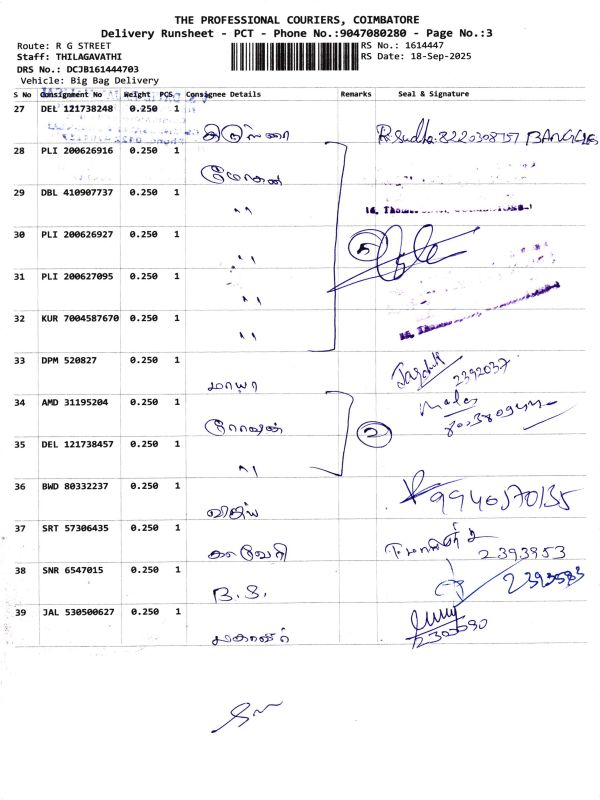 THE PROFESSIONAL COURIERS, COIMBATORE
Delivery Runsheet - PCT - Phone No.:9047080280 - Page No.:3
Route: R G STREET
Staff: THILAGAVATHI
DRS No.: DCJB161444703
Vehicle: Big Bag Delivery
RS No.: 1614447
RS Date: 18-Sep-2025
S No Consignment No Weight PCS Consignee Details Remarks Seal & Signature
27 DEL 121738248 0.250 1
28 PLI 200626916 0.250 1 மோகன்
29 DBL 410907737 0.250 1 "
30 PLI 200626927 0.250 1 " 5
31 PLI 200627095 0.250 1 "
32 KUR 7004587670 0.250 1 "
33 DPM 520827 0.250 1 மாயா 2392037
34 AMD 31195204 0.250 1 ரோஷன்
35 DEL 121738457 0.250 1 " 2
36 BWD 80332237 0.250 1 விஜய்
37 SRT 57306435 0.250 1 காவேரி 2393953
38 SNR 6547015 0.250 1 B.S. 2393583
39 JAL 530500627 0.250 1 மகாவீர்